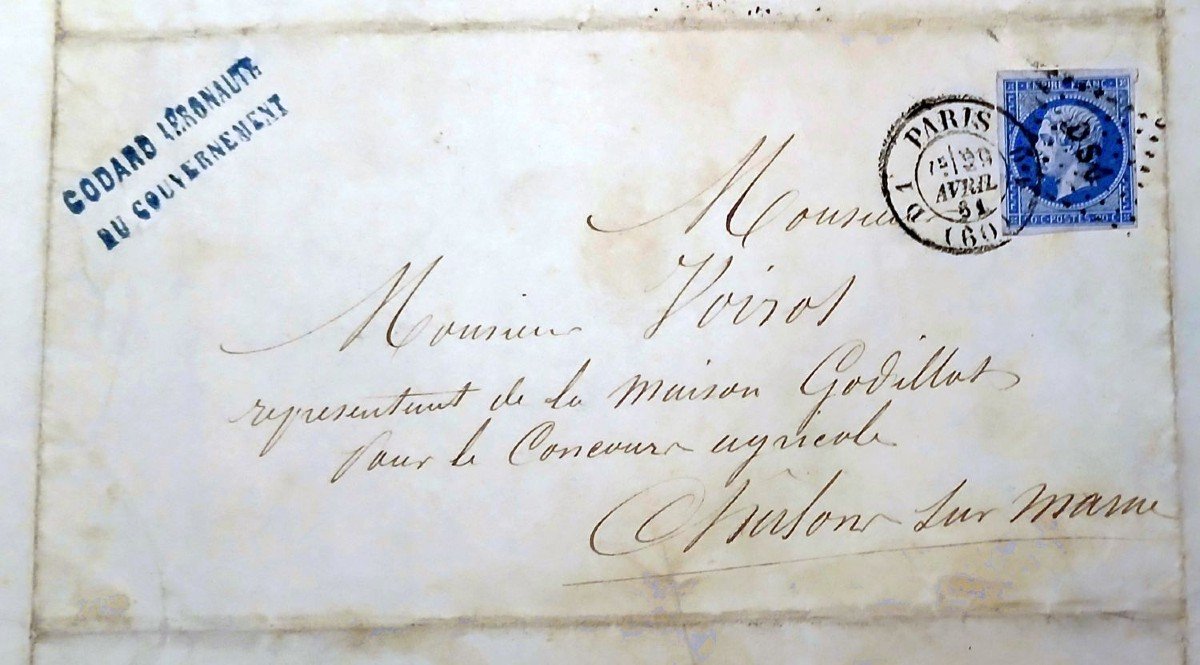 GODARD AÉRONAUTE
DU GOUVERNEMENT
PARIS
AVRIL
61
(60)
D1
EMPIRE FRANC
20 C. POSTES 20 C.
Monsieur
Monsieur Voirot
representant de la maison Godillot
pour le Concours agricole
Châlons sur Marne